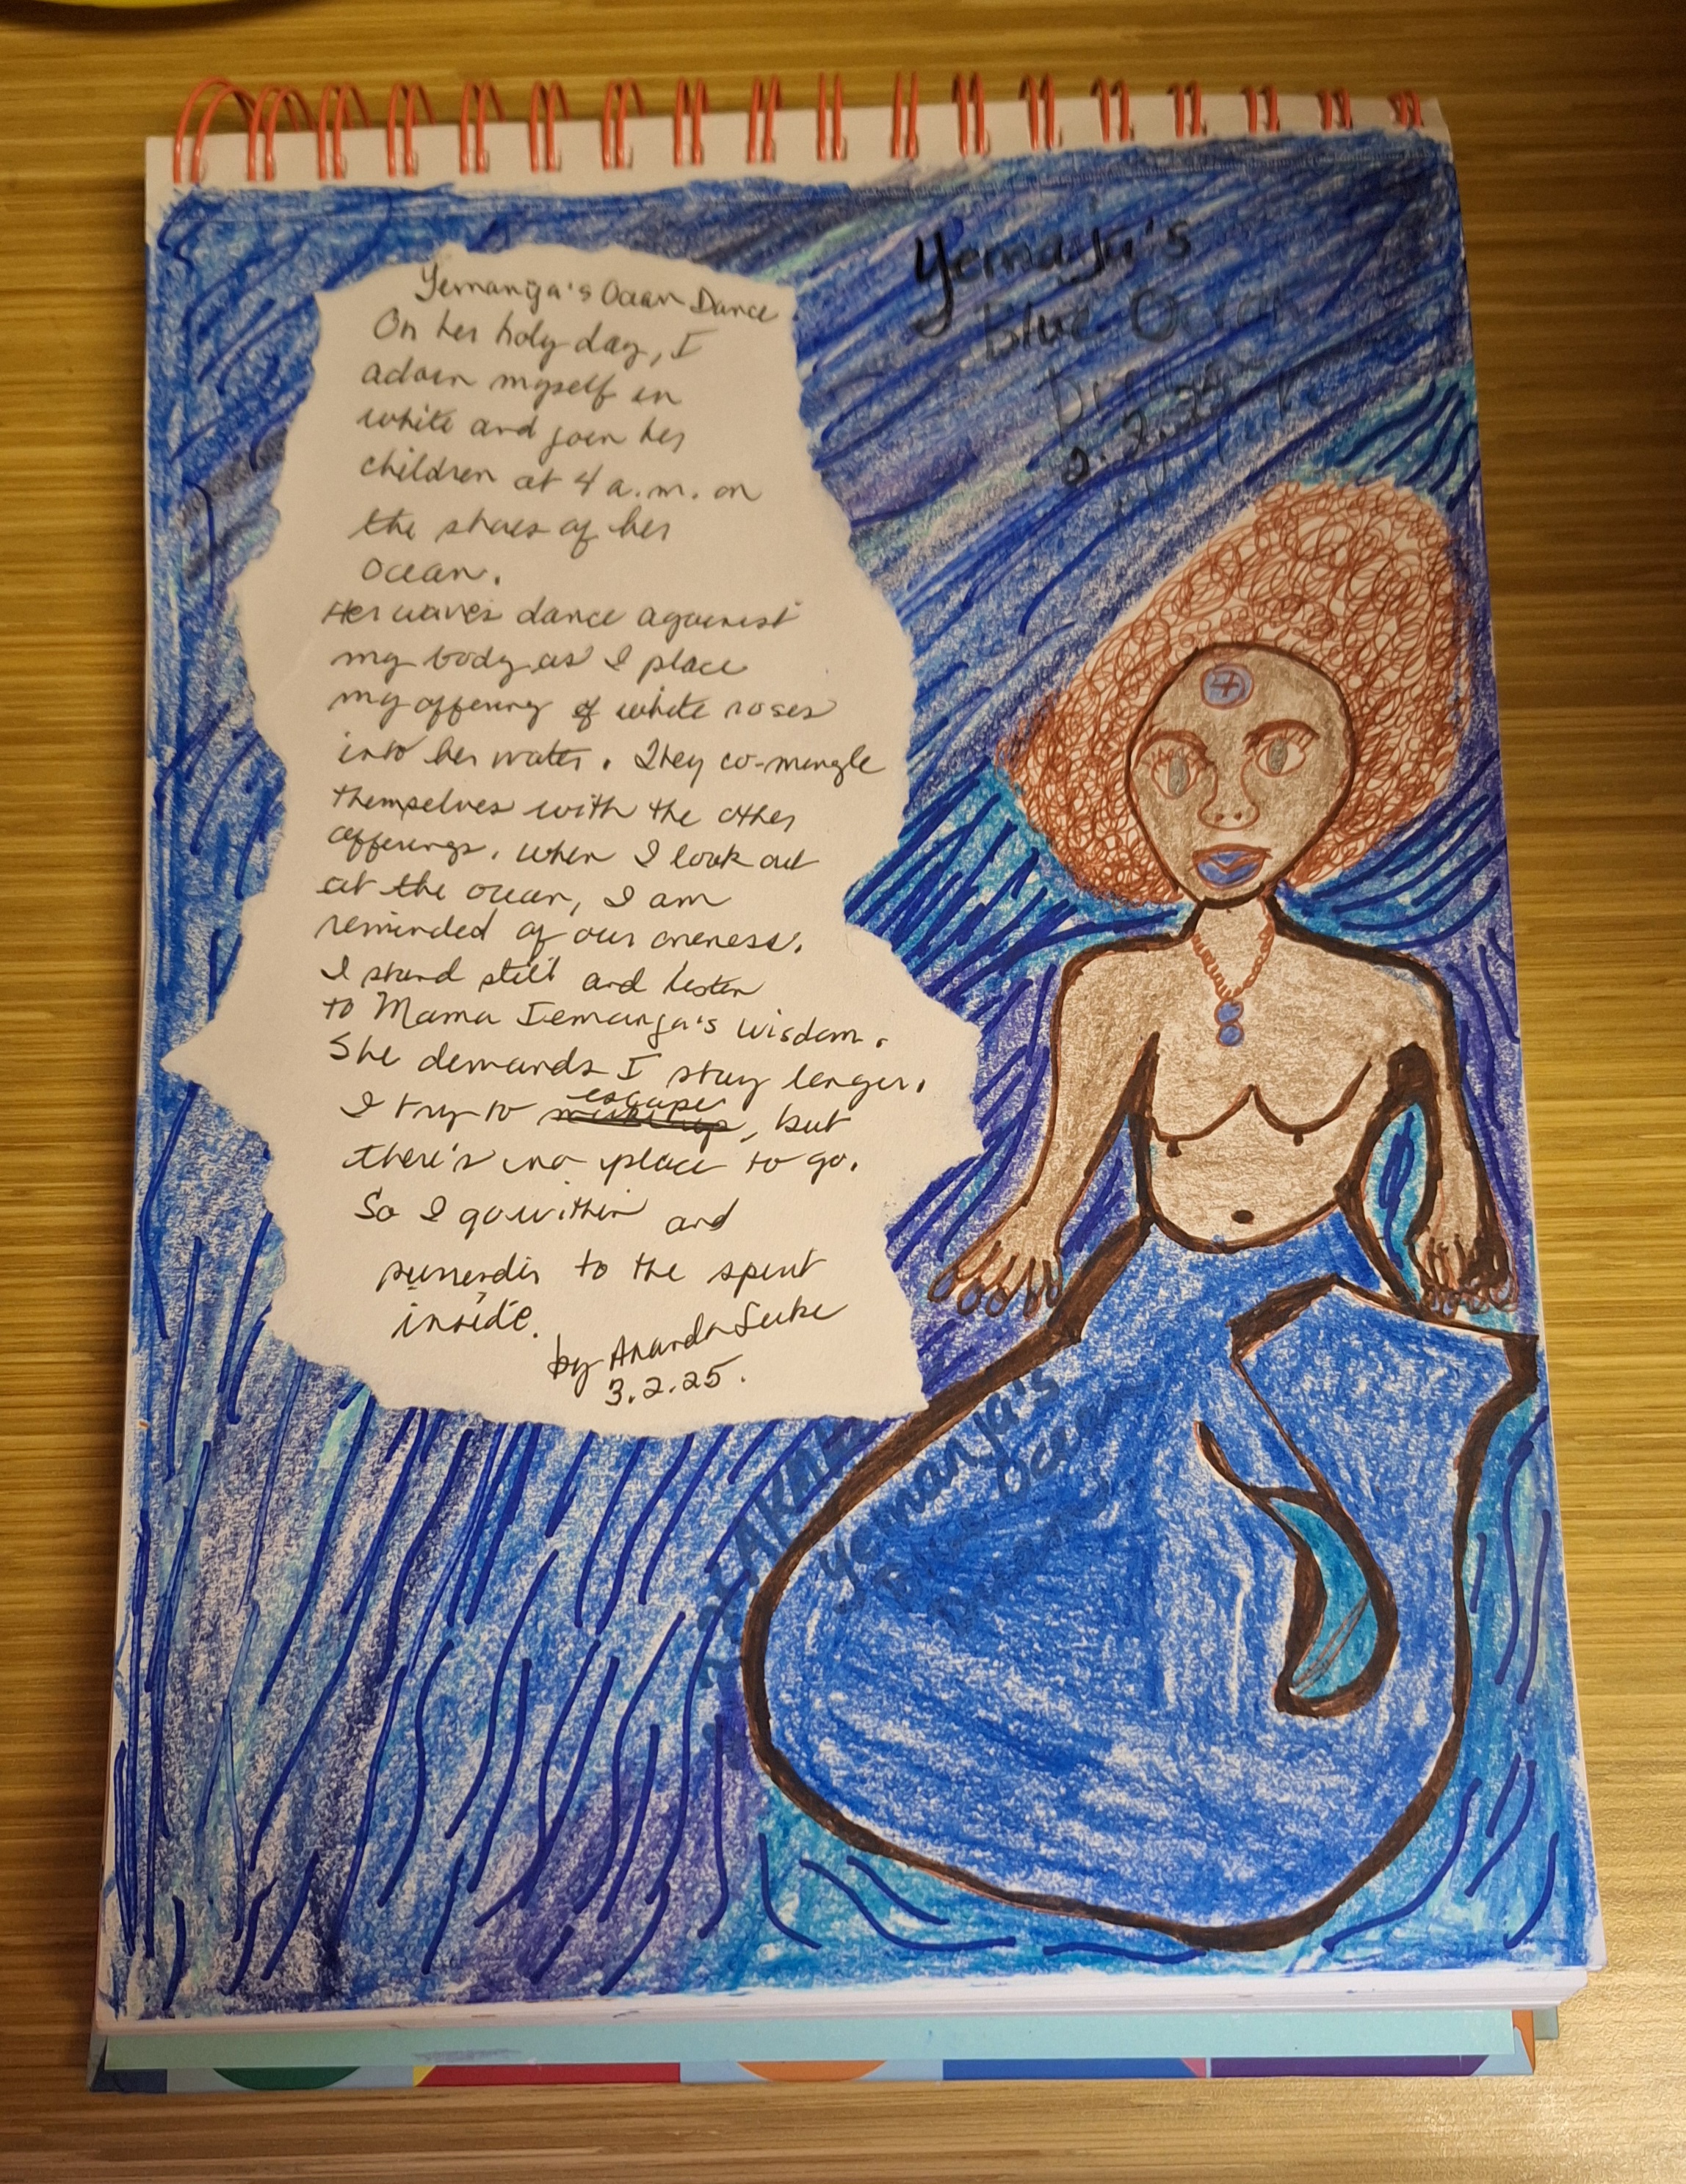 Yemanja's Ocean Dance
On her holy day, I
adorn myself in
white and join her
children at 4 a.m. on
the shores of her
ocean.
Her waves dance against
my body as I place
my offering of white roses
into her water. They co-mingle
themselves with the other
offerings. When I look out
at the ocean, I am
reminded of our oneness.
I stand still and listen
to Mama Iemanja's wisdom.
She demands I stay longer.
I try to escape, but
there's no place to go.
So I go within and
surrender to the spirit
inside.
by Ananda Leeke
3.2.25.
Yemaja's
Blue Ocean
Yemanja's
Blue Ocean